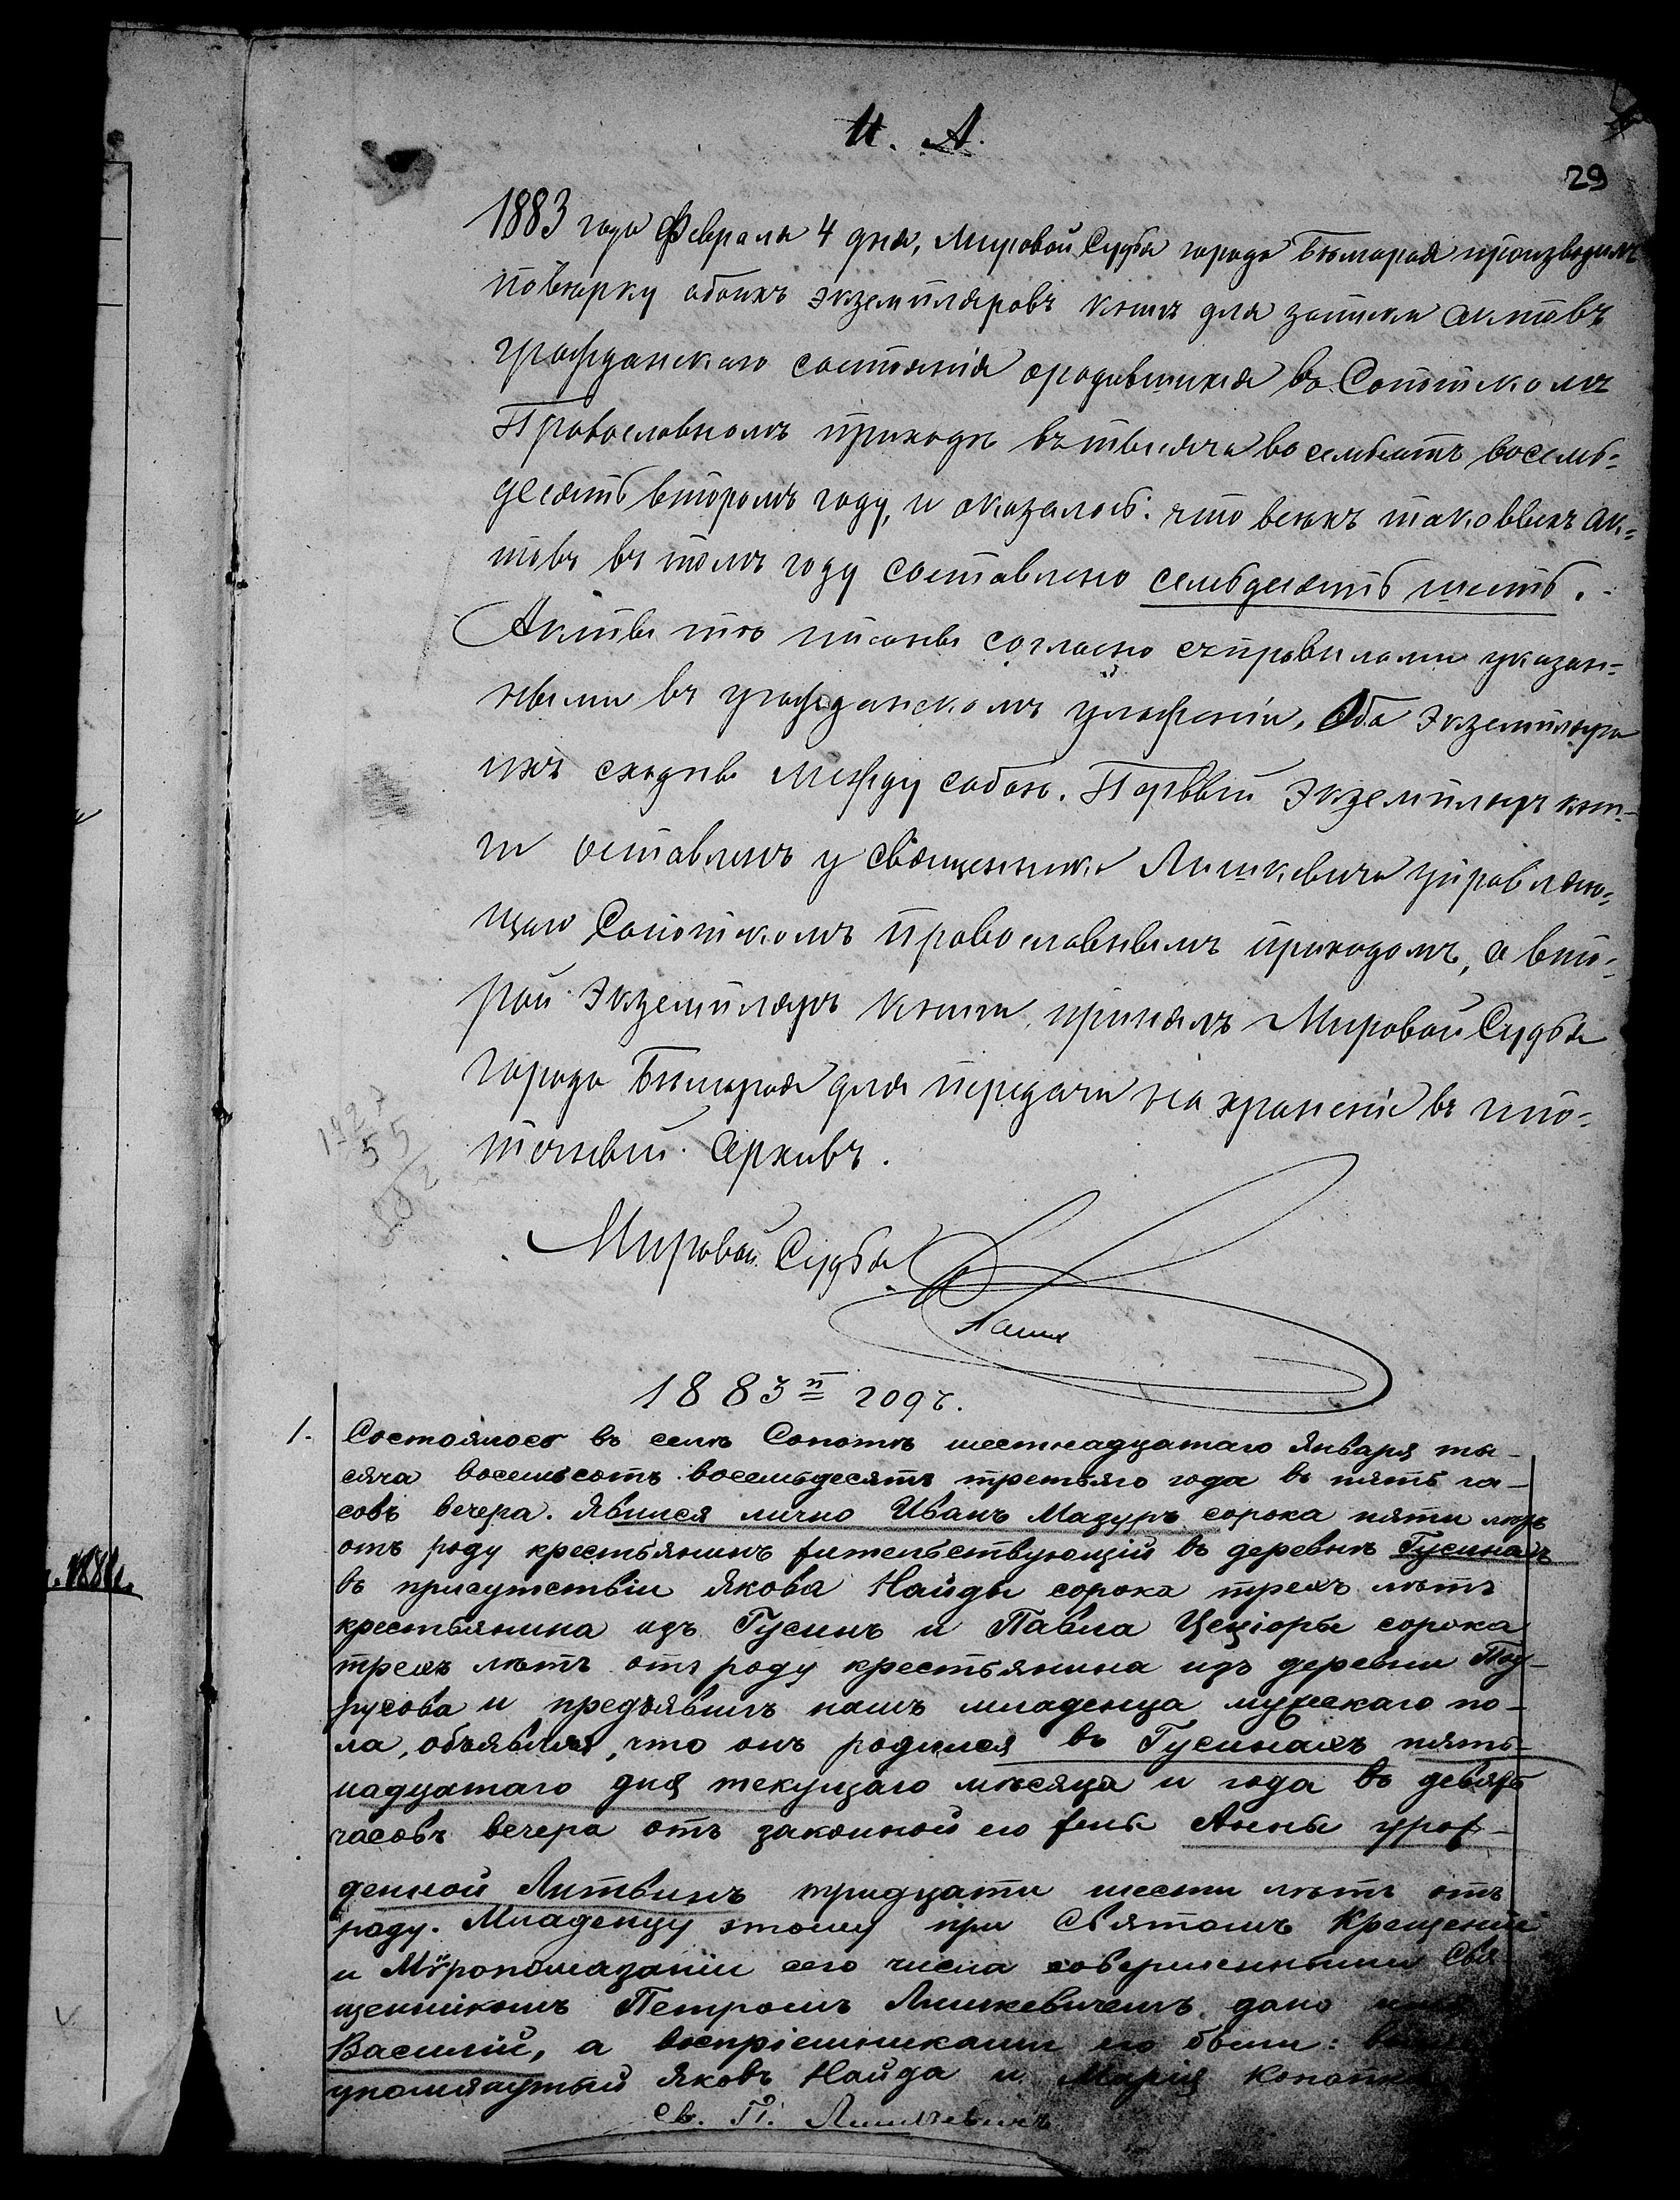 И. А.
29
1883 года Февраля 4 дня, Мировой Судья города Бѣлгорая производилъ
повѣрку обоихъ экземпляровъ книгъ для записки актовъ
гражданскаго состоянія о родившихся въ Сопотскомъ
Православномъ приходѣ въ тысяча восемьсотъ восемь=
десятъ второмъ году, и оказалось: что всѣхъ таковыхъ ак=
товъ въ томъ году составлено семьдесятъ шесть.
Акты тѣ писаны согласно съ правилами указан=
ными въ гражданскомъ уложеніи, Оба Экземпляра
ихъ сходны между собою. Первый Экземпляръ кни-
ги оставленъ у священника Лишкевича управляю=
щаго Сопотскомъ православнымъ приходомъ, а вто=
рой Экземпляръ книги принялъ Мировой Судья
города Бѣлгорая для передачи на храненіе въ ипо=
течный Архивъ.
Мировой Судья
1883й годъ.
1. Состоялось въ селѣ Сопотѣ шестнадцатаго Января ты-
сяча восемьсотъ восемьдесятъ третьяго года въ пять ча-
совъ вечера. Явился лично Иванъ Мазуръ сорока пяти лѣтъ
отъ роду крестьянинъ жительствующій въ деревнѣ Гусинахъ
въ присутствіи Якова Найды сорока трехъ лѣтъ
крестьянина изъ Гусинъ и Павла Цеціоры сорока
трехъ лѣтъ отъ роду крестьянина изъ деревни Под-
русова и предъявилъ намъ младенца мужескаго по-
ла, объявляя, что онъ родился въ Гусинахъ пять-
надцатаго дня текущаго мѣсяца и года въ девять
часовъ вечера отъ законной его жены Анны урож-
денной Литвинъ тридцати шести лѣтъ отъ
роду. Младенцу этому при Святомъ Крещеніи
и Мѵропомазаніи сего числа совершенными Свя
щенникомъ Петромъ Лишкевичемъ дано имя
Василій, а воспріемниками его были:
упомянутый Яковъ Найда и Марія
Св. П. Лишкевичъ